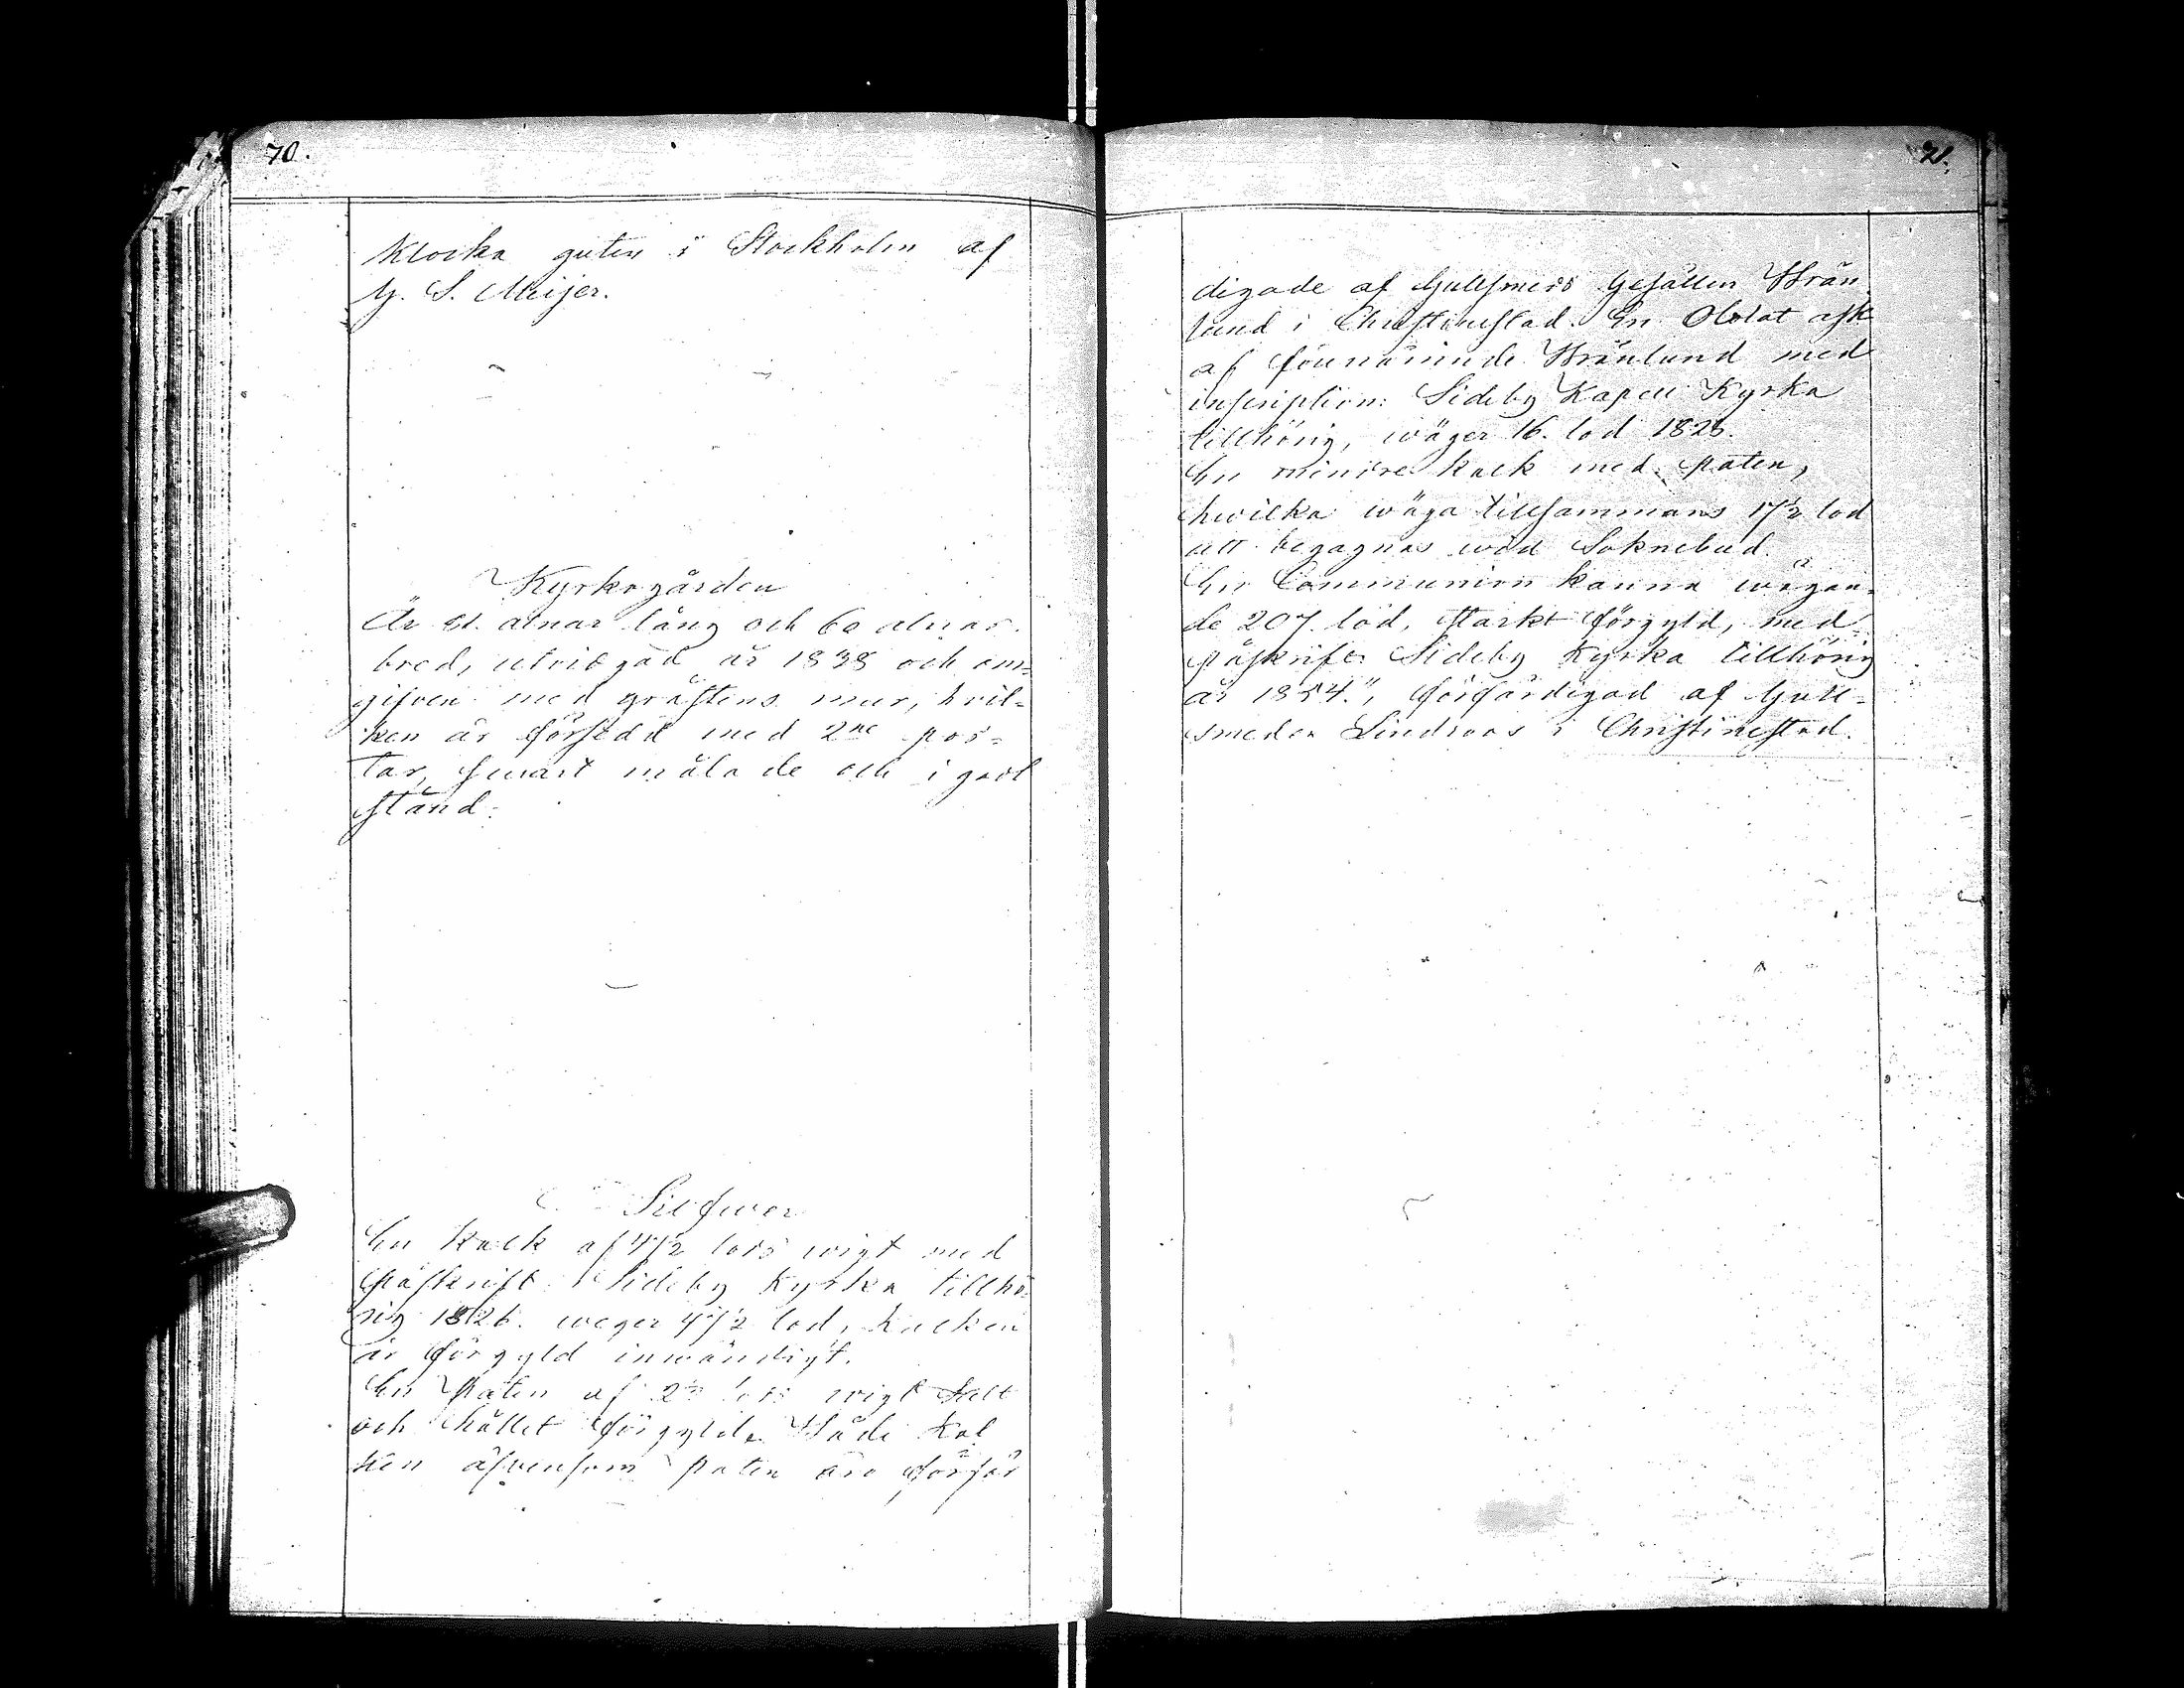 70.
Klocka guten i Stockholm af
G. S. Meijer.
Kyrkogården
Är 81. alnar lång och 60 alnar
bred, utvidgad år 1838 och om=
gifven med gråstens mur, hvil=
ken är försedd med 2ne por=
tar, swart målade och i godt
stånd.
Silfwer
En kalk af 41/2 lods wigt med
påskrift Sideby Kyrka tillhö=
rig 1826. weger 41/2 lod, kalken
är förgyld inwändigt.
En Paten af lods wigt
och hållet förgyld. Både Kal
ken äfvensom paten äro förfär
71.
digade af Gullsmeds Gesällen Brän
lund i Christinestad. En Oblat ask
af förenämnde Bränlund med
inscription: Sideby Kapell Kyrka
tillhörig, wäger 16. lod 1826.
En mindre kalk med paten,
hwilka wäga tillsammans 17½ lod
att begagnas wid Soknebud.
En Communion kanna wägan=
de 207. lod, starkt förgyld, med
påskrift: Sideby Kyrka tillhörig
år 1854.", förfärdigad af Gull=
smeden Lindroos i Christinestad.